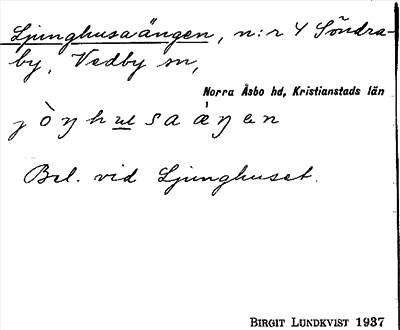 Ljunghusaängen, n:r 4 Söndra-
by, Vedby sn,
Norra Åsbo hd, Kristianstads län
j ò ŋ h u s a à ŋ e n
Bel. vid Ljunghuset.
BIRGIT LUNDKVIST 1937